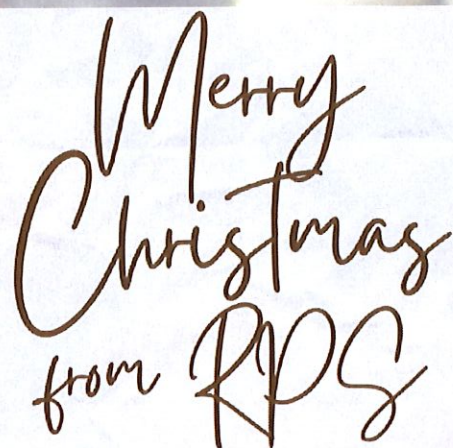 Merry
Christmas
from RPS